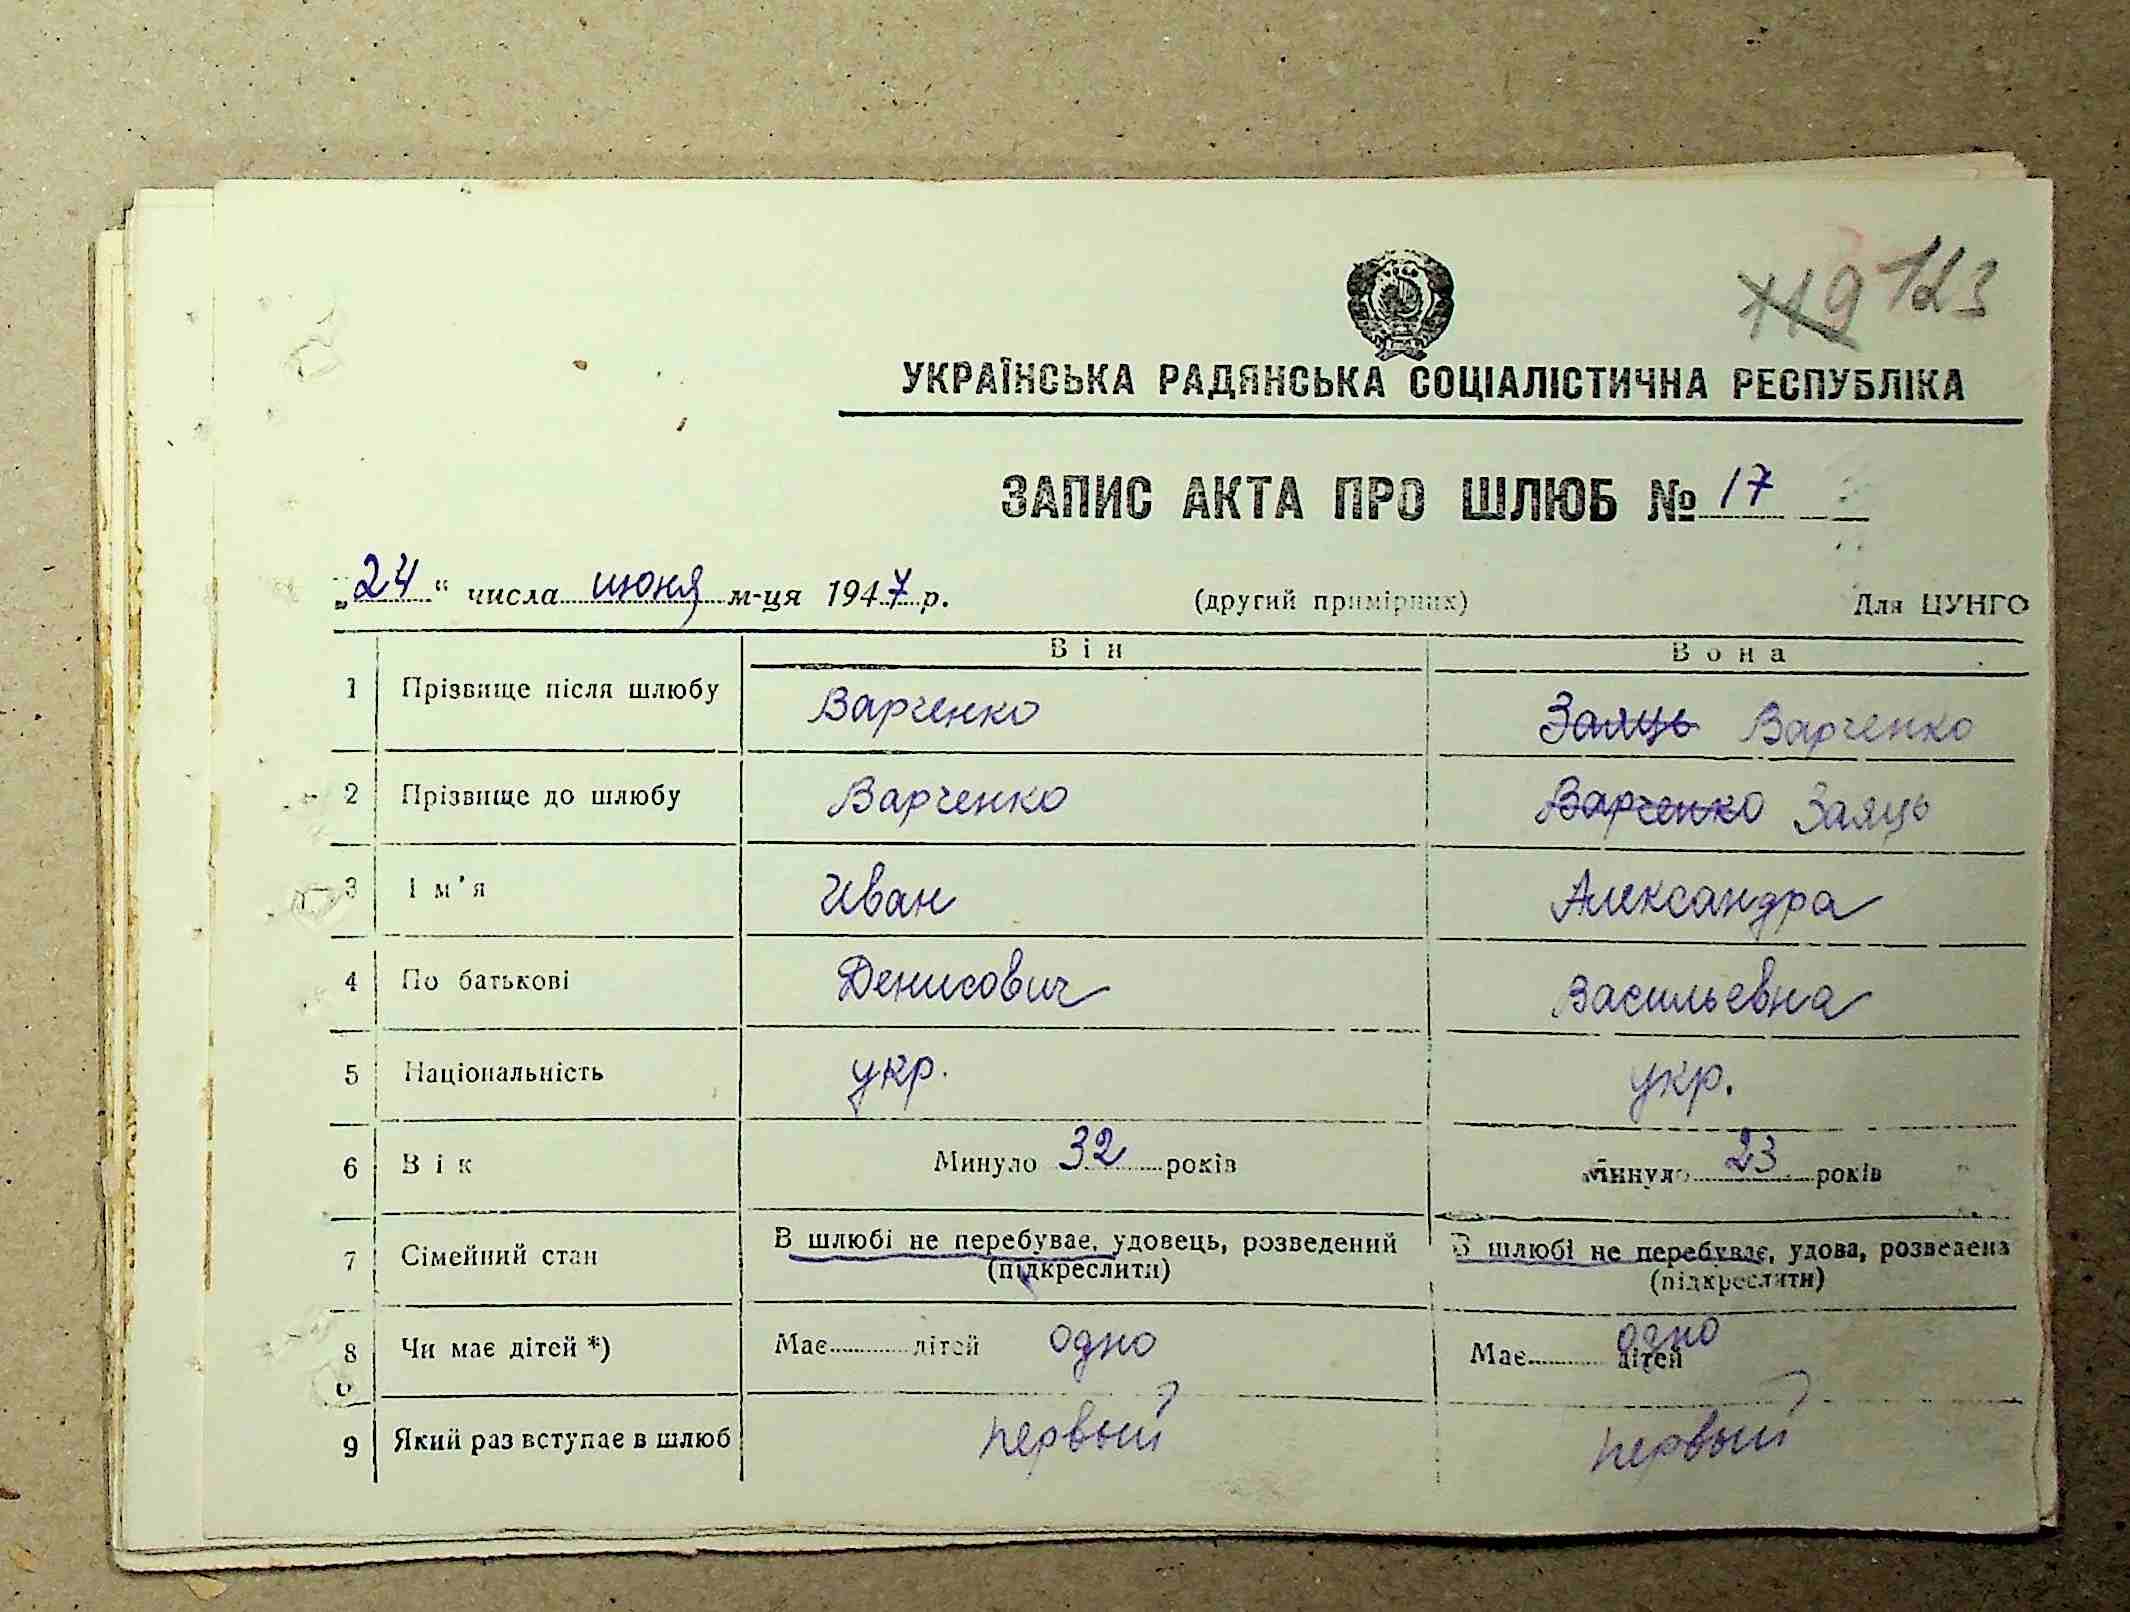 119 123
УКРАЇНСЬКА РАДЯНСЬКА СОЦІАЛІСТИЧНА РЕСПУБЛІКА
ЗАПИС АКТА ПРО ШЛЮБ № 17
„24“ числа июня м-ця 1947 р. (другий примірник) Для ЦУНГО
Він Вона
1 Прізвище після шлюбу Варченко Заяць Варченко
2 Прізвище до шлюбу Варченко Варченко Заяць
3 Ім'я Иван Александра
4 По батькові Денисович Васильевна
5 Національність укр. укр.
6 Вік Минуло 32 років Минуло 23 років
7 Сімейний стан В шлюбі не перебуває, удовець, розведений В шлюбі не перебуває, удова, розведена
(підкреслити) (підкреслити)
8 Чи має дітей *) Має дітей одно Має дітей одно
9 Який раз вступає в шлюб первый первый